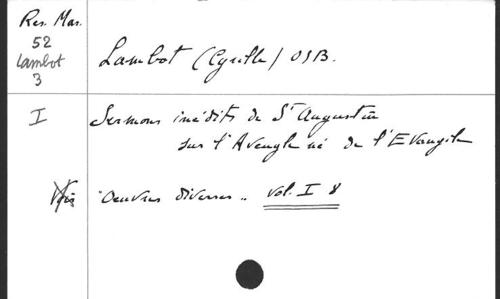 Res. Mar.
52
Lambot
3
Lambot (Cyrille) OSB.
I
Sermons inédits de St Augustin
sur l'Aveugle né de l'Evangile
Voir
Oeuvres diverses .. vol. I 8